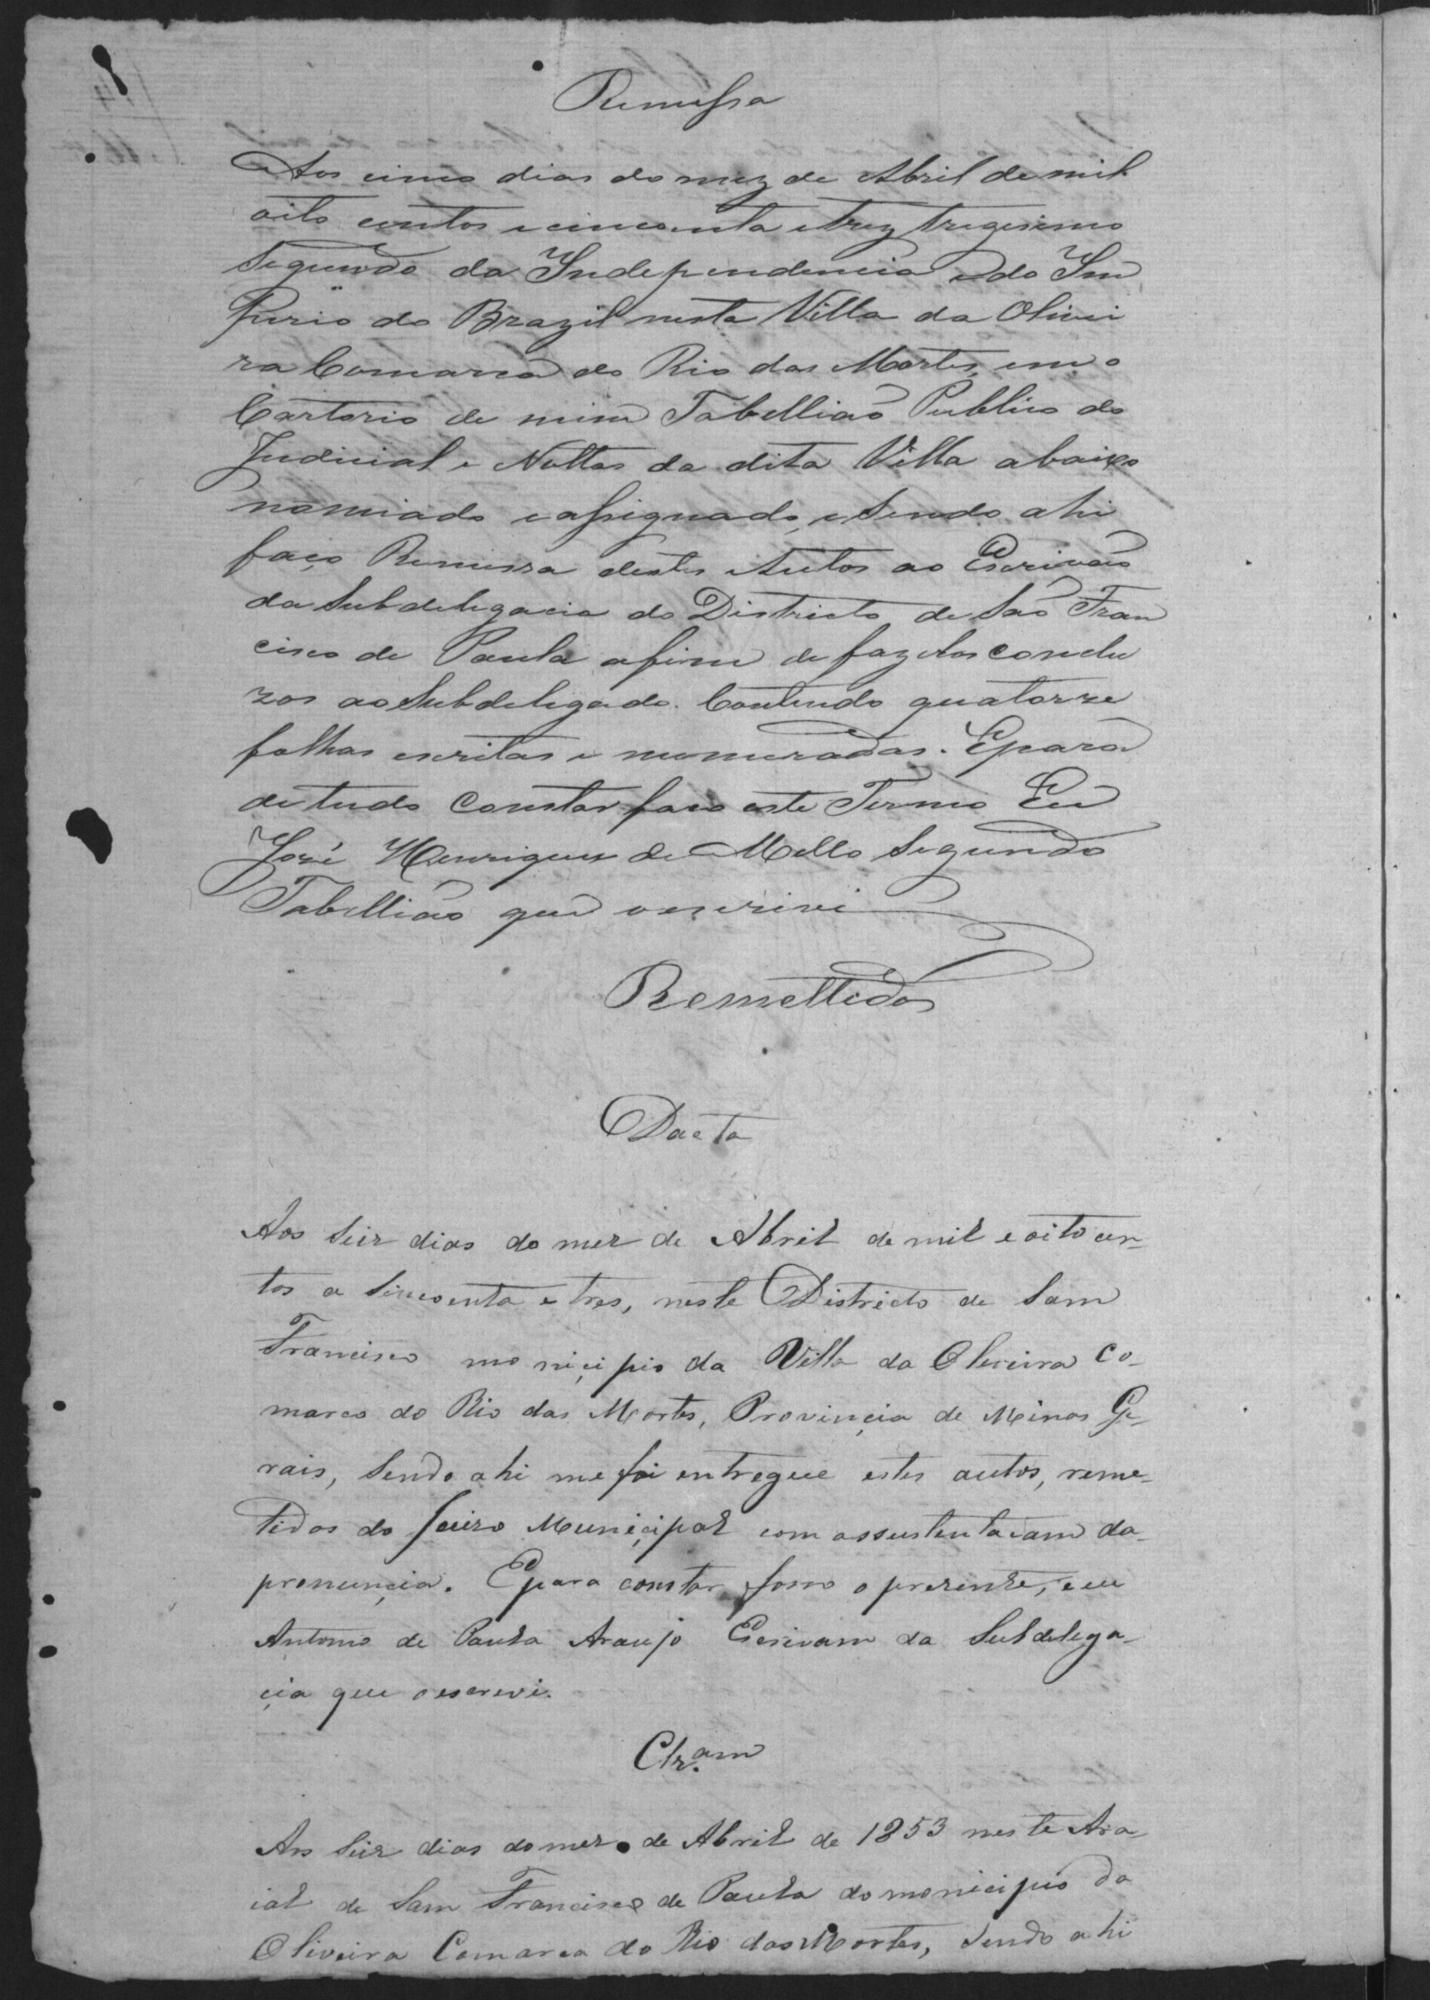 Remessa
Aos cinco dias do mez de Abril de mil
oito centos e cincoenta e trez trigesimo
segundo da Independencia e do Im
perio do Brazil nesta Villa da Olivei
ra Comarca do Rio das Mortes, em o
Cartorio de mim Tabellião Publico do
Judicial e Nottas da dita Villa abaixo
nomiado e assignado, e sendo ahi
faço Remessa destes Autos ao Escrivão
da Subdelegacia do Districto de São Fran
cisco de Paula afim de fazelos conclu
zos ao Subdelegado. Contendo quatorze
folhas escritas e numeradas. E para
de tudo constar faço este Termo Eu
José Henriques de Mello Segundo
Tabellião que o escrivi
Remettidos
Dacta
Aos seis dias do mez de Abril de mil e oito cen-
tos a sincoenta e tres, neste Districto de Sam
Francisco moniçipio da Villa da Oliveira Co-
marca do Rio das Mortes, Provinçia de Minas Ge-
rais, sendo ahi me foi entregue estes autos, reme-
tidos do Juizo Muniçipal com assustentacam da
pronunçia. E para constar faso o prezente, e eu
Antonio de Paula Araujo Escrivam da Subdelega-
çia que o escrevi.
Clz.am
Aos seis dias do mez de Abril de 1853 neste Ara
ial de Sam Francisco de Paula do monicipio da
Oliveira Comarca do Rio das Mortes, sendo ahi